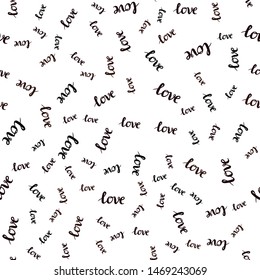 love love love love love love love
love love love love love love
love love love love love love
love love love love love love
love love love love love love
love love love love love love
love love love love love love
love love love love love love
love love love love love love
love love love love love love
shutterstock.com · 1469243069